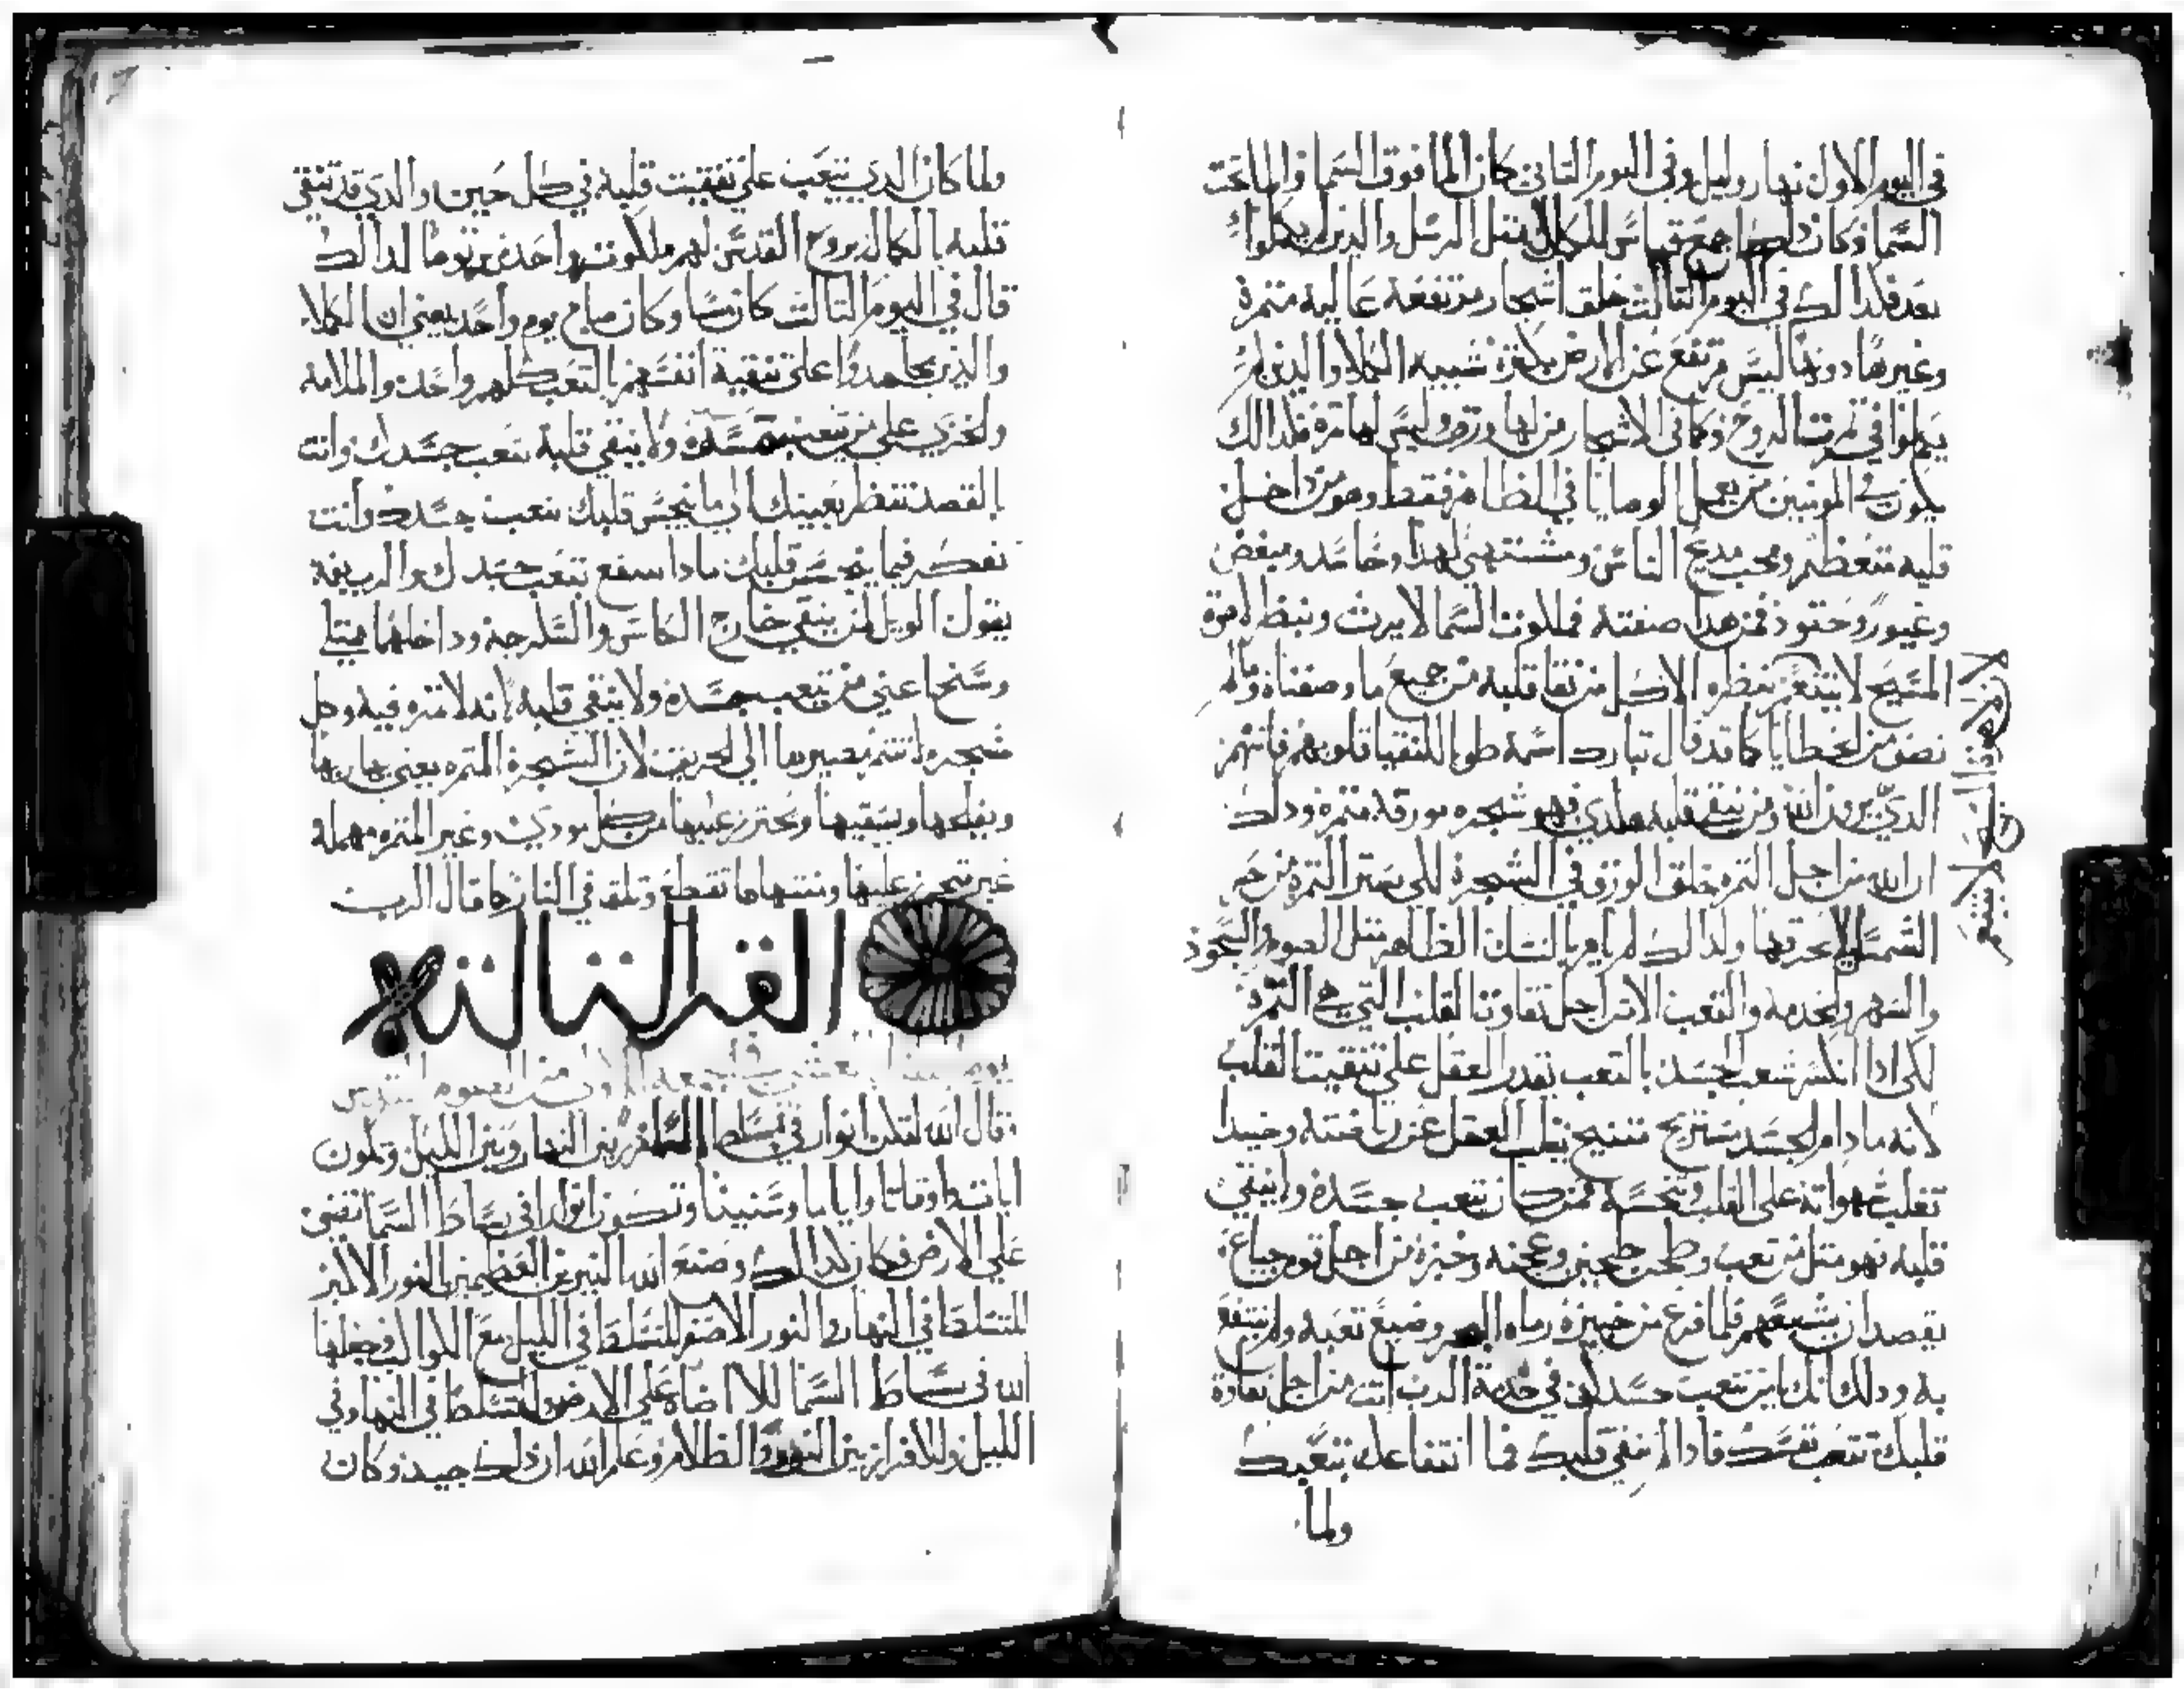 في اليوم الاول نهار وليل وفي اليوم التاني كان الما فوق السما والما تحت
السما وكان دلك اجمع قياس للكمال متل الرسل والدين لم يكملوا
بعد فلدالك في اليوم التالت خلق اشجار مرتفعة عالية متمرة
وغيرها دونها ليس مرتفع عن الارض بلا تمرة شبيه الكملا والدين لم
يكملوا في تمرت الروح وكما في الاشجار من لها ورق وليس لها تمرة فلدالك
يكون في المومنين من يعمل الوصايا في الظاهر فقط وهو من داخل
قلبه متعظم ومحب مديح الناس ومشتهي لهدا وحاسد ومبغض
وغيور وحقود فمن هدا صفته فملكوت السما لا يرت وبنظرة قوة
المسيح لا يتنعم بنظره الا كل من نقا قلبه من جميع ما وصفناه وما لم
نصف من الخطايا كما قد قال تبارك اسمه طوبا للنقيا قلوبهم فانهم
الدي يرون الله ومن ينقي قلبه هكدي فهو شجره مورقة متمرة ودلك
ان الله من اجل التمره خلق الورق في الشجرة لكي يستر التمرة من حر
الشمس لالا يحرقها ولدالك لم يامر بالنسك الظاهر متل الصوم والسجود
والسهر والخدمة والتعب الا من اجل نقاوتنا القلب التي هي التمرة
لكي ادا انكسر شعب الجسد بالتعب يقدر العقل على تنقيت القلب
لانه ما دام الجسد مستريح متنيح يغلب العقل عن رياضته وحينيدا
تغلب شهواته على القلب وتنجسه فمن كان يتعب جسده ولا ينقي
قلبه فهو متل من تعب وطحن طحين وعجنه وخبزه من اجل قوم جياع
يقصد ان يشبعهم فلما فرغ من خبيزه رماه البحر وضيع تعبه ولم ينتفع
به ودلك انك ياهن تتعب جسدك في خدمة الرب انت من اجل نقاوة
قلبك تتعب نفسك فادا لم تنقي قلبك فما انتفاعك بتعبك
ولما
ولما كان الدي يتعب على تنقيت قلبه في كل حين والدي قد تنقي
قلبه بالكمال بروح القدس لهم ملكوت واحده يرتوها لدالك
قال في اليوم التالت كان مسا وكان صباح يوم واحد يعني ان الكملا
والدين يجاهدوا على تنقية انفسهم بالتعب كلهم واحد والملامة
والخزي على من يتعب جسده ولا ينقي قلبه تتعب جسدك وانت
بالقصد تنظر بعينك الى ما ينجس قلبك تتعب جسدك وانت
تفكر فيما ينجس قلبك مادا ينفع بتعب جسدك والرب
يقول الويل لمن ينقي خارج الكاس والسكرجة وداخلها ممتلي
وسخا عني من يتعب جسده ولا ينقي قلبه لانه لا تمره فيه وكل
شجره لا تتمر مصيرها الى الحريق لان الشجرة المتمره يعني بها ربها
ويفلحها ويسقيها ويحترز عليها من كل مودي وغير المتمره مهملة
غير متحرز عليها ومنتهاها تقطع وتلقى في النار كما قال الرب
القراة التالتة
قال الله لتكن انوار في بساط السما لتفرز بين النهار وبين الليل وتكون
ايات واوقاتا واياما وسنينا وتكون انوارا في بساط السما تضي
على الارض فكان لدالك وصنع الله النيرين العظيمين النور الاكبر
للتسلط في النهار والنور الاصغر للتسلط في الليل مع الكواكب فجعلها
الله في بساط السما للاضاة على الارض والتسلط في النهار وفي
الليل وللافراز بين النور والظلام وعلم الله ان دلك جيد وكان